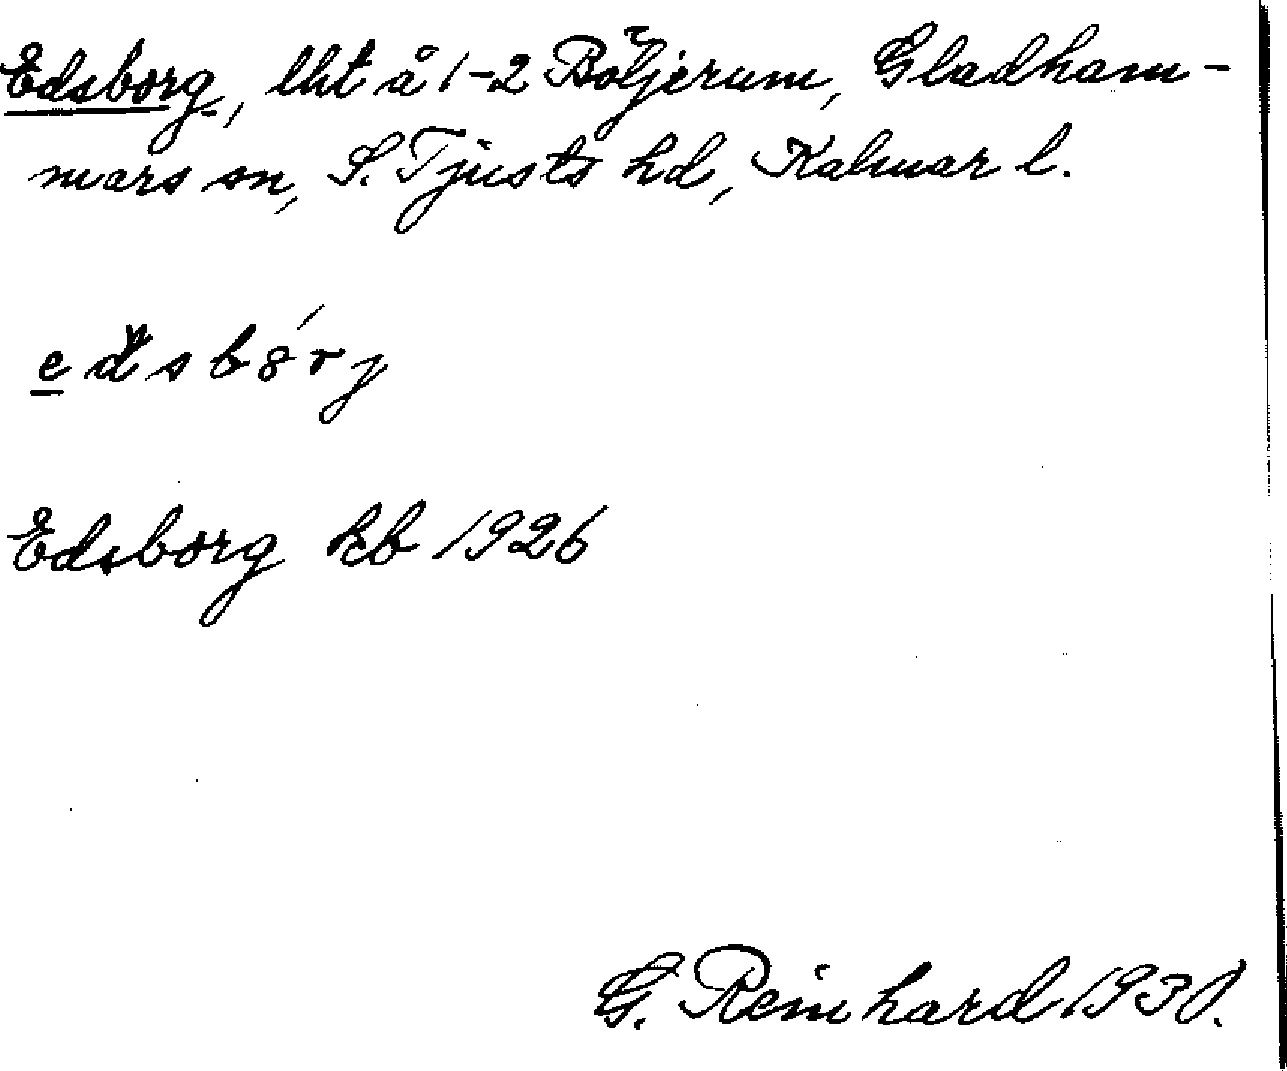 Edsborg, lht å 1-2 Böljerum, Gladham-
mars sn, S. Tjusts hd, Kalmar l.
Edsborg kb 1926
G. Reinhard 1930.